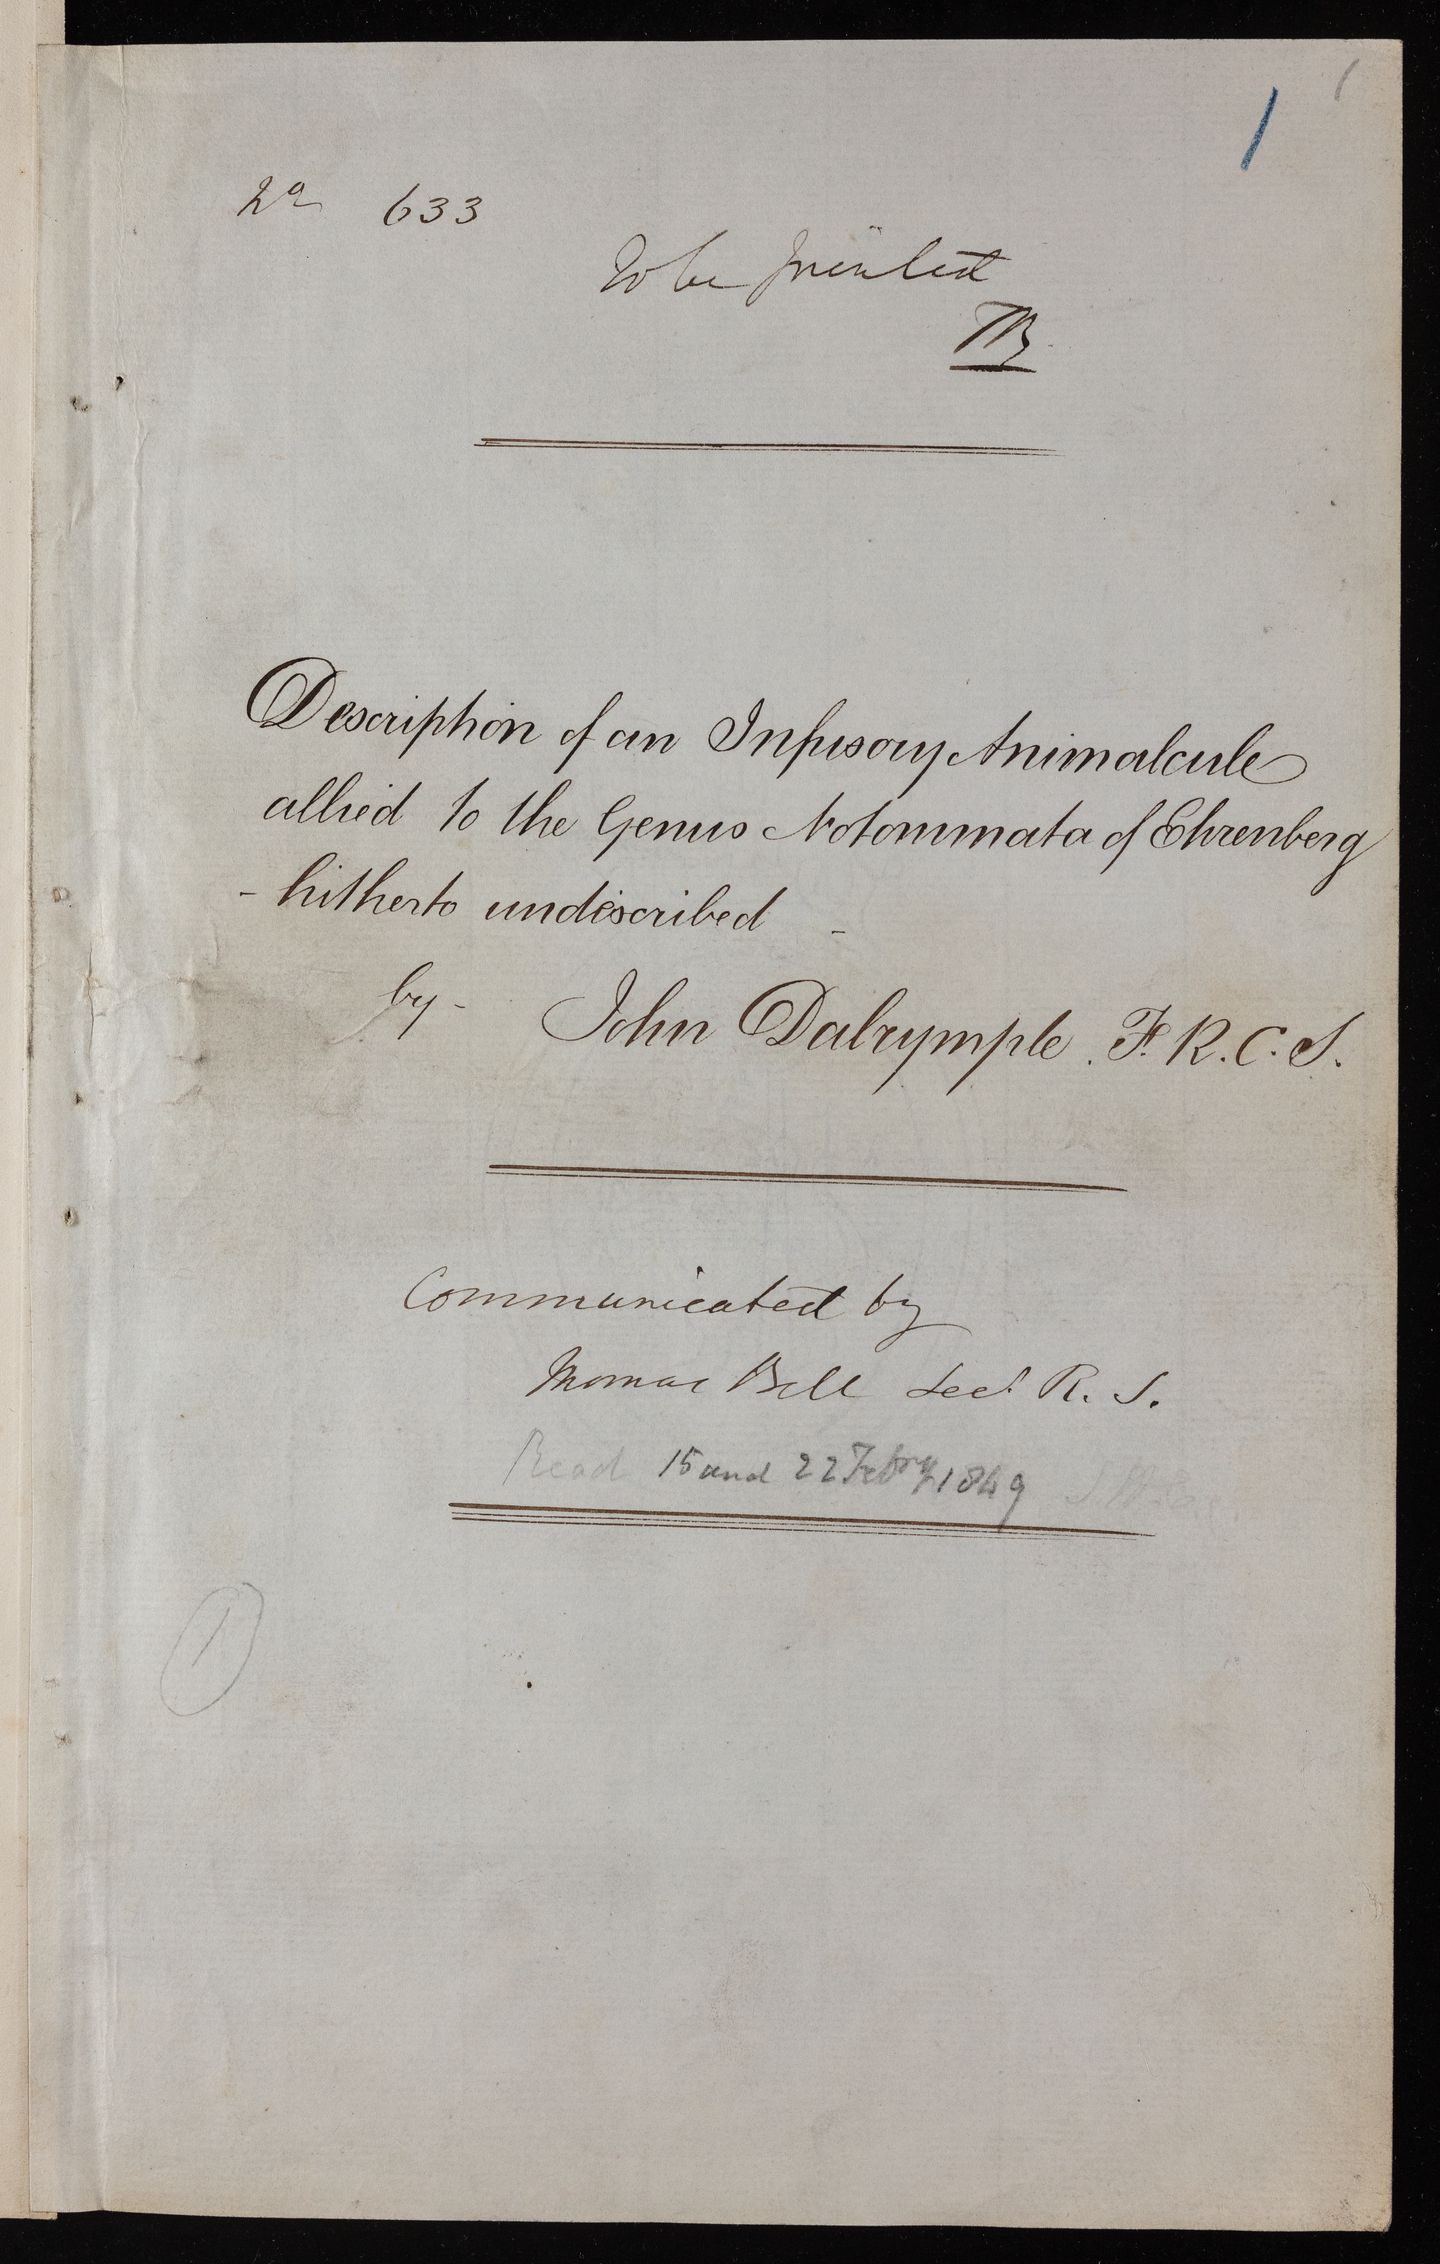 1
1
633
To be printed
TB
Description of an Infusory Animalcule
allied to the Genus Notommata of Ehrenberg
- hitherto undescribed -
by - John Dalrymple. F. R. C. S.
Communicated by
Thomas Bell Sec. R. S.
Read 15 and 22 Febry 1849
1